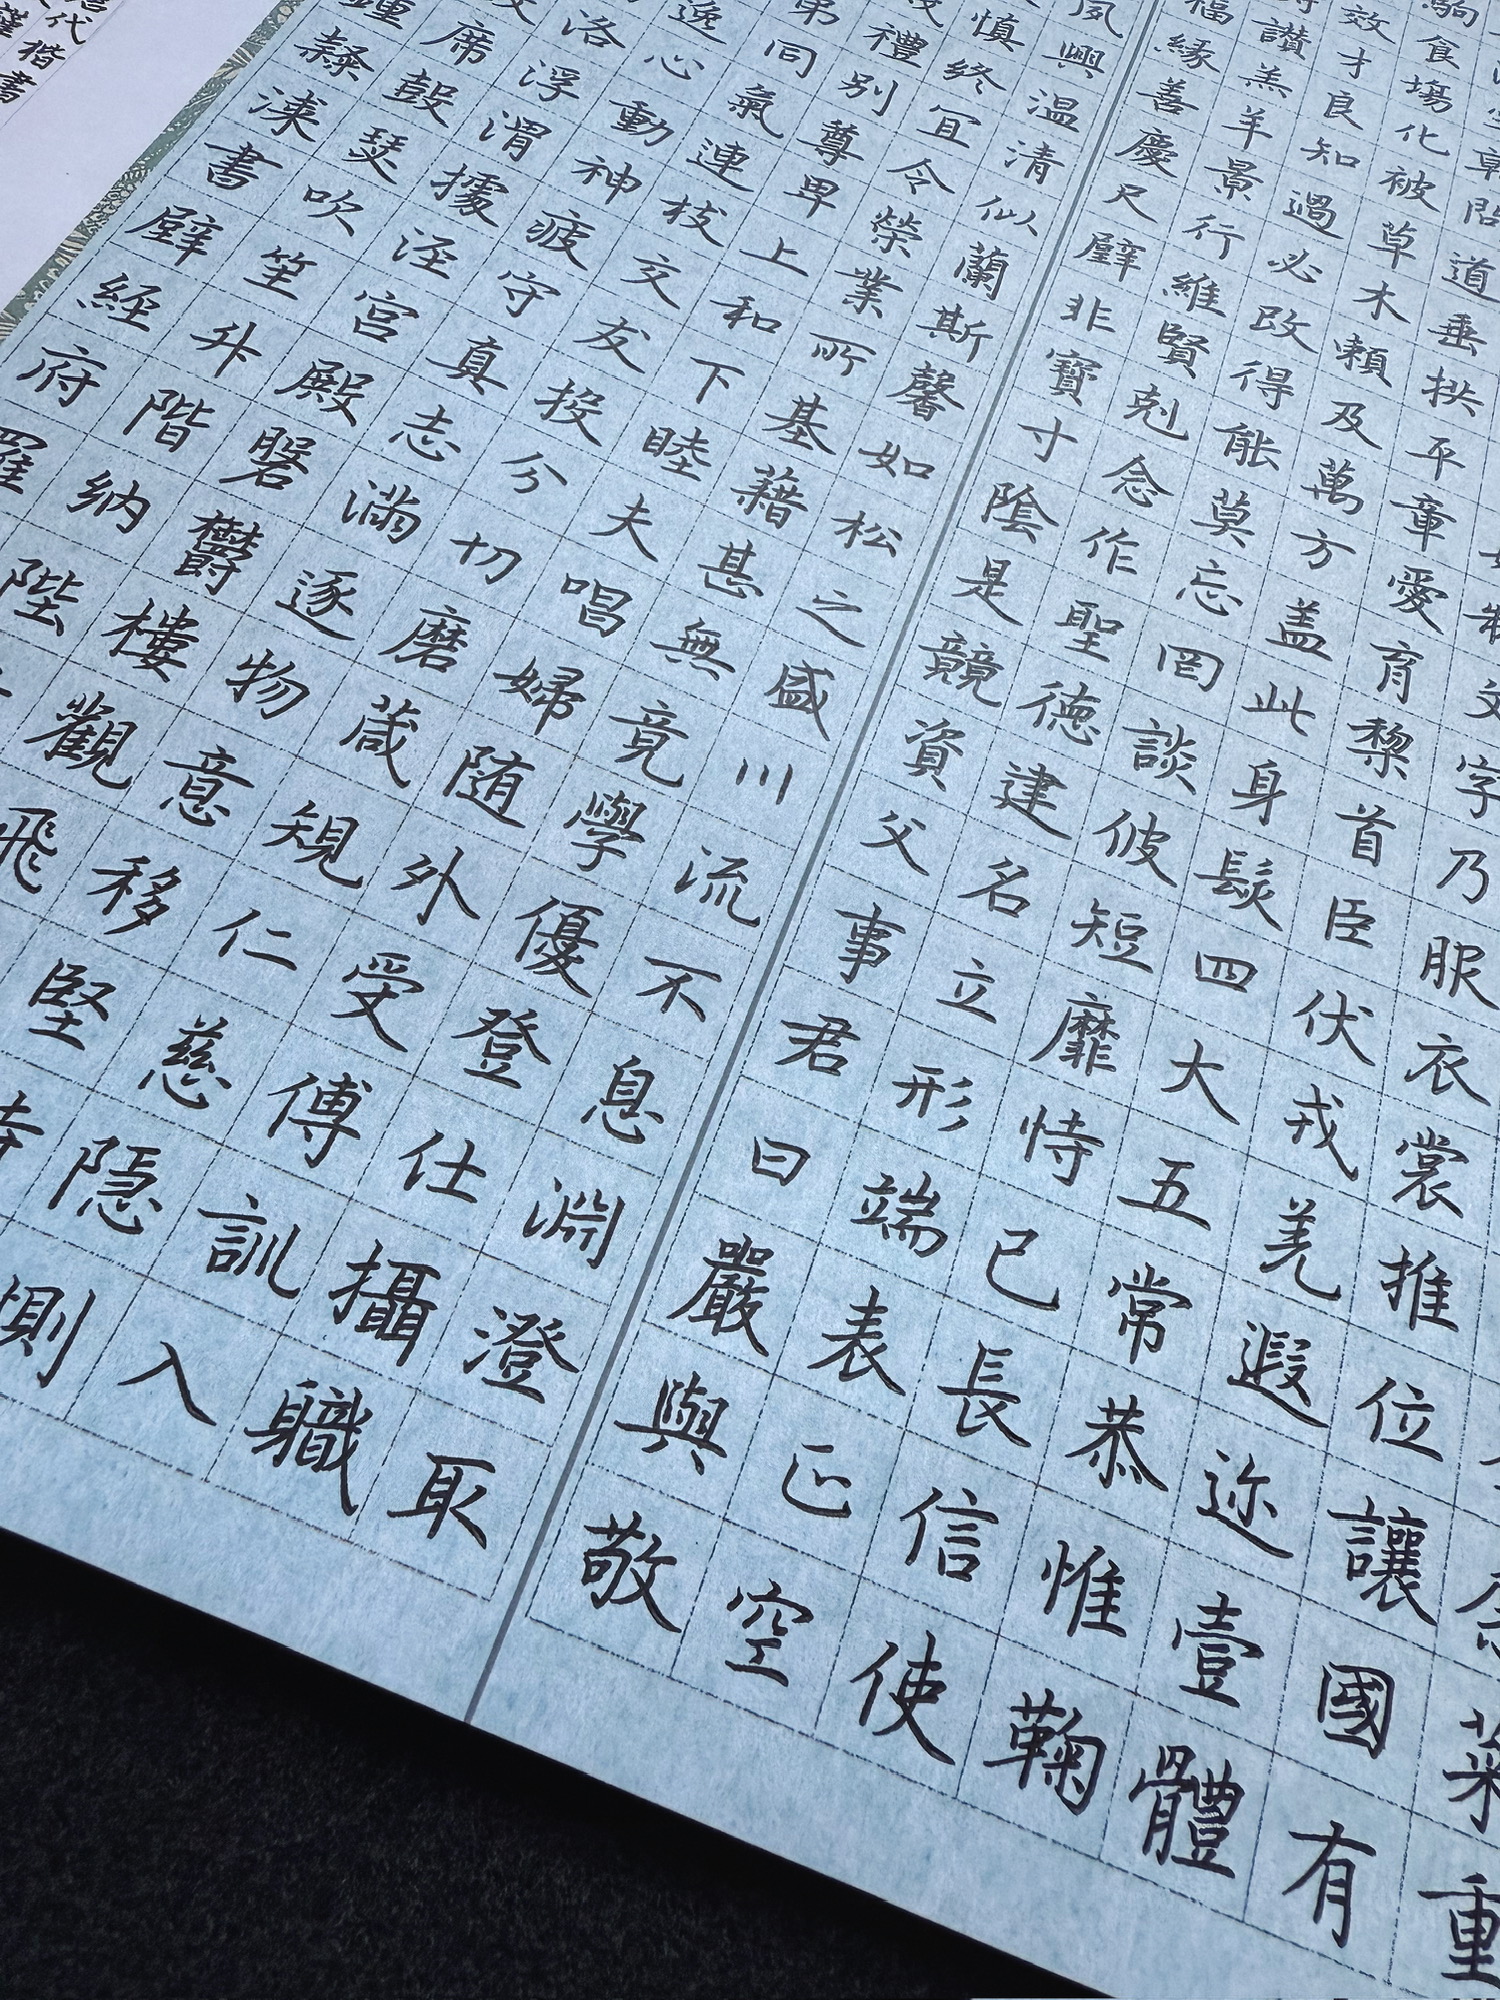 重
制文字乃服衣裳推位讓國有
道垂拱平章愛育黎首臣伏戎羌遐迩壹體
駒食場化被草木賴及萬方盖此身髮四大五常恭惟鞠
效才良知過必改得能莫忘罔談彼短靡恃己長信使
讃羔羊景行維賢剋念作聖德建名立形端表正空
福緣善慶尺璧非寶寸陰是競資父事君曰嚴與敬
夙興温清似蘭斯馨如松之盛川流不息淵澄取
慎終宜令榮業所基藉甚無竟學優登仕攝職
禮別尊卑上和下睦夫唱婦随外受傅訓入
弟同氣連枝交友投分切磨箴規仁慈隱惻
逸心動神疲守真志滿逐物意移堅持
洛浮渭據涇宮殿磐鬱樓觀飛
席鼓瑟吹笙升階納陛
鍾隸漆書壁經府羅
代楷書